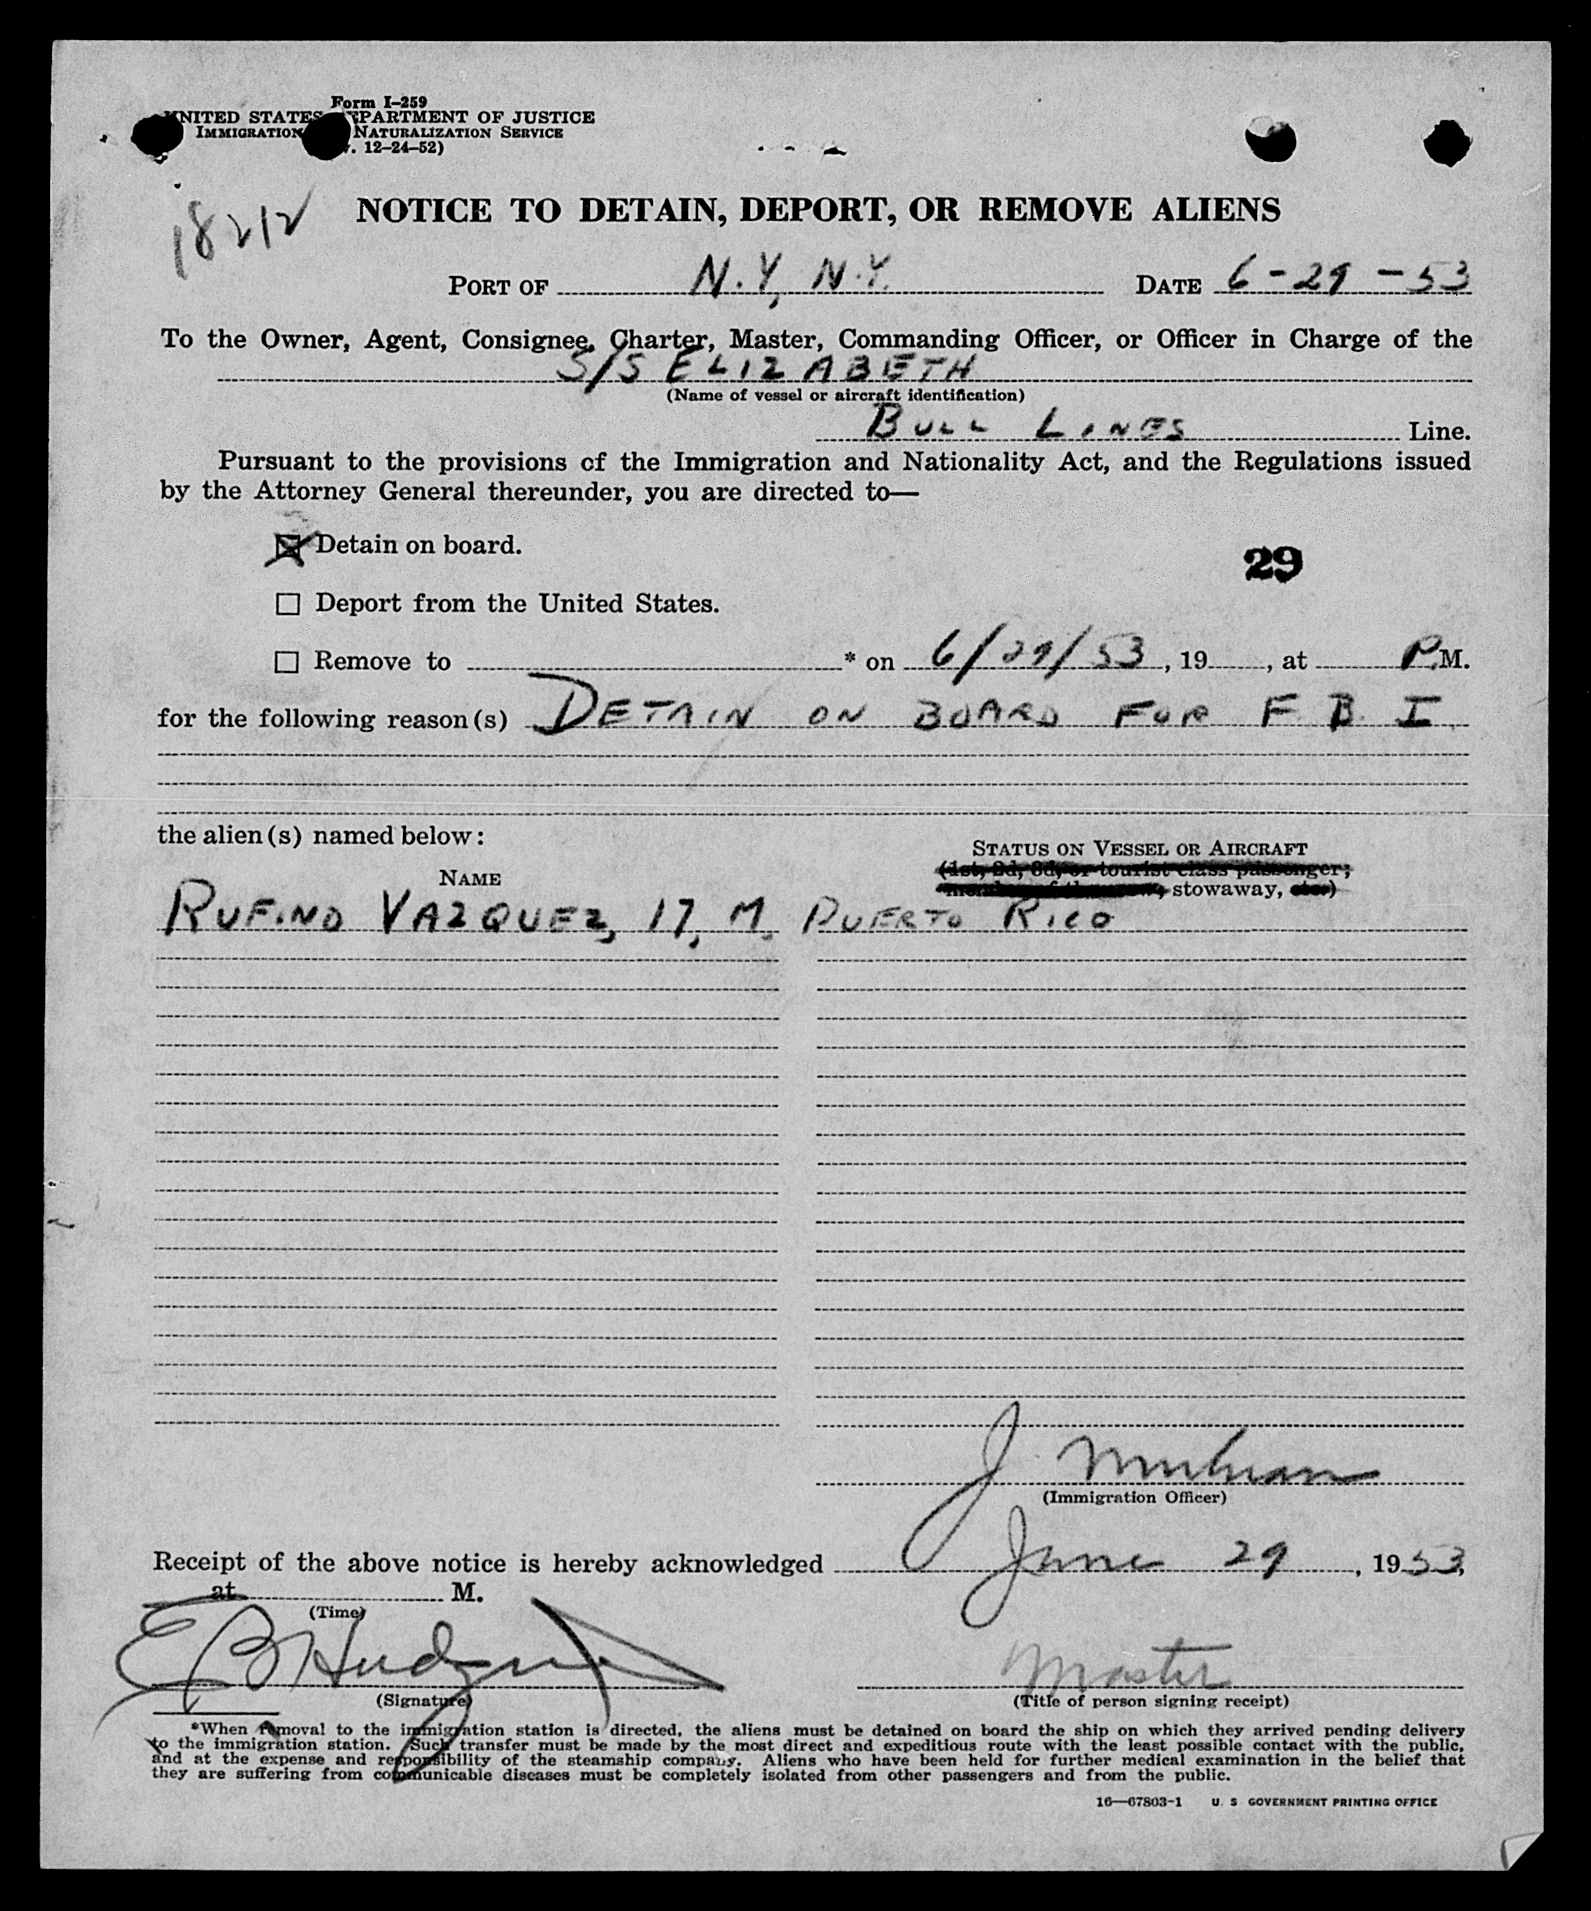 Form I-259
UNITED STATES DEPARTMENT OF JUSTICE
IMMIGRATION NATURALIZATION SERVICE
. 12-24-52)
18212
NOTICE TO DETAIN, DEPORT, OR REMOVE ALIENS
PORT OF N.Y, N.Y. DATE 6-29-53
To the Owner, Agent, Consignee, Charter, Master, Commanding Officer, or Officer in Charge of the
S/S ELIZABETH
(Name of vessel or aircraft identification)
BULL LINES Line.
Pursuant to the provisions of the Immigration and Nationality Act, and the Regulations issued
by the Attorney General thereunder, you are directed to—
☒ Detain on board.
29
☐ Deport from the United States.
☐ Remove to * on 6/29/53, 19 , at P.M.
for the following reason(s) DETAIN ON BOARD FOR F.B.I.
the alien(s) named below:
STATUS ON VESSEL OR AIRCRAFT
(1st, 2d, 3d, or tourist class passenger;
NAME
stowaway, etc.)
RUFINO VAZQUEZ, 17, M. PUERTO RICO
J.
(Immigration Officer)
Receipt of the above notice is hereby acknowledged June 29, 1953,
at M.
(Time)
E B Hudgins
Master
(Signature)
(Title of person signing receipt)
*When removal to the immigration station is directed, the aliens must be detained on board the ship on which they arrived pending delivery
to the immigration station. Such transfer must be made by the most direct and expeditious route with the least possible contact with the public,
and at the expense and responsibility of the steamship company. Aliens who have been held for further medical examination in the belief that
they are suffering from communicable diseases must be completely isolated from other passengers and from the public.
16—67803-1 U. S. GOVERNMENT PRINTING OFFICE